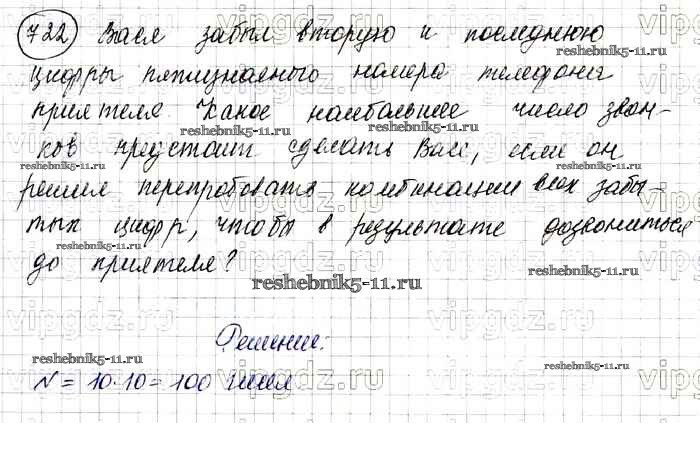 722 Вася забыл вторую и последнюю
цифры пятизначного номера телефона
приятеля. Какое наибольшее число звон-
ков предстоит сделать Васе, если он
решил перепробовать комбинации всех забы-
тых цифр, чтобы в результате дозвониться
до приятеля?
Решение:
N = 10·10 = 100 чисел
vipgdz.ru
reshebnik5-11.ru